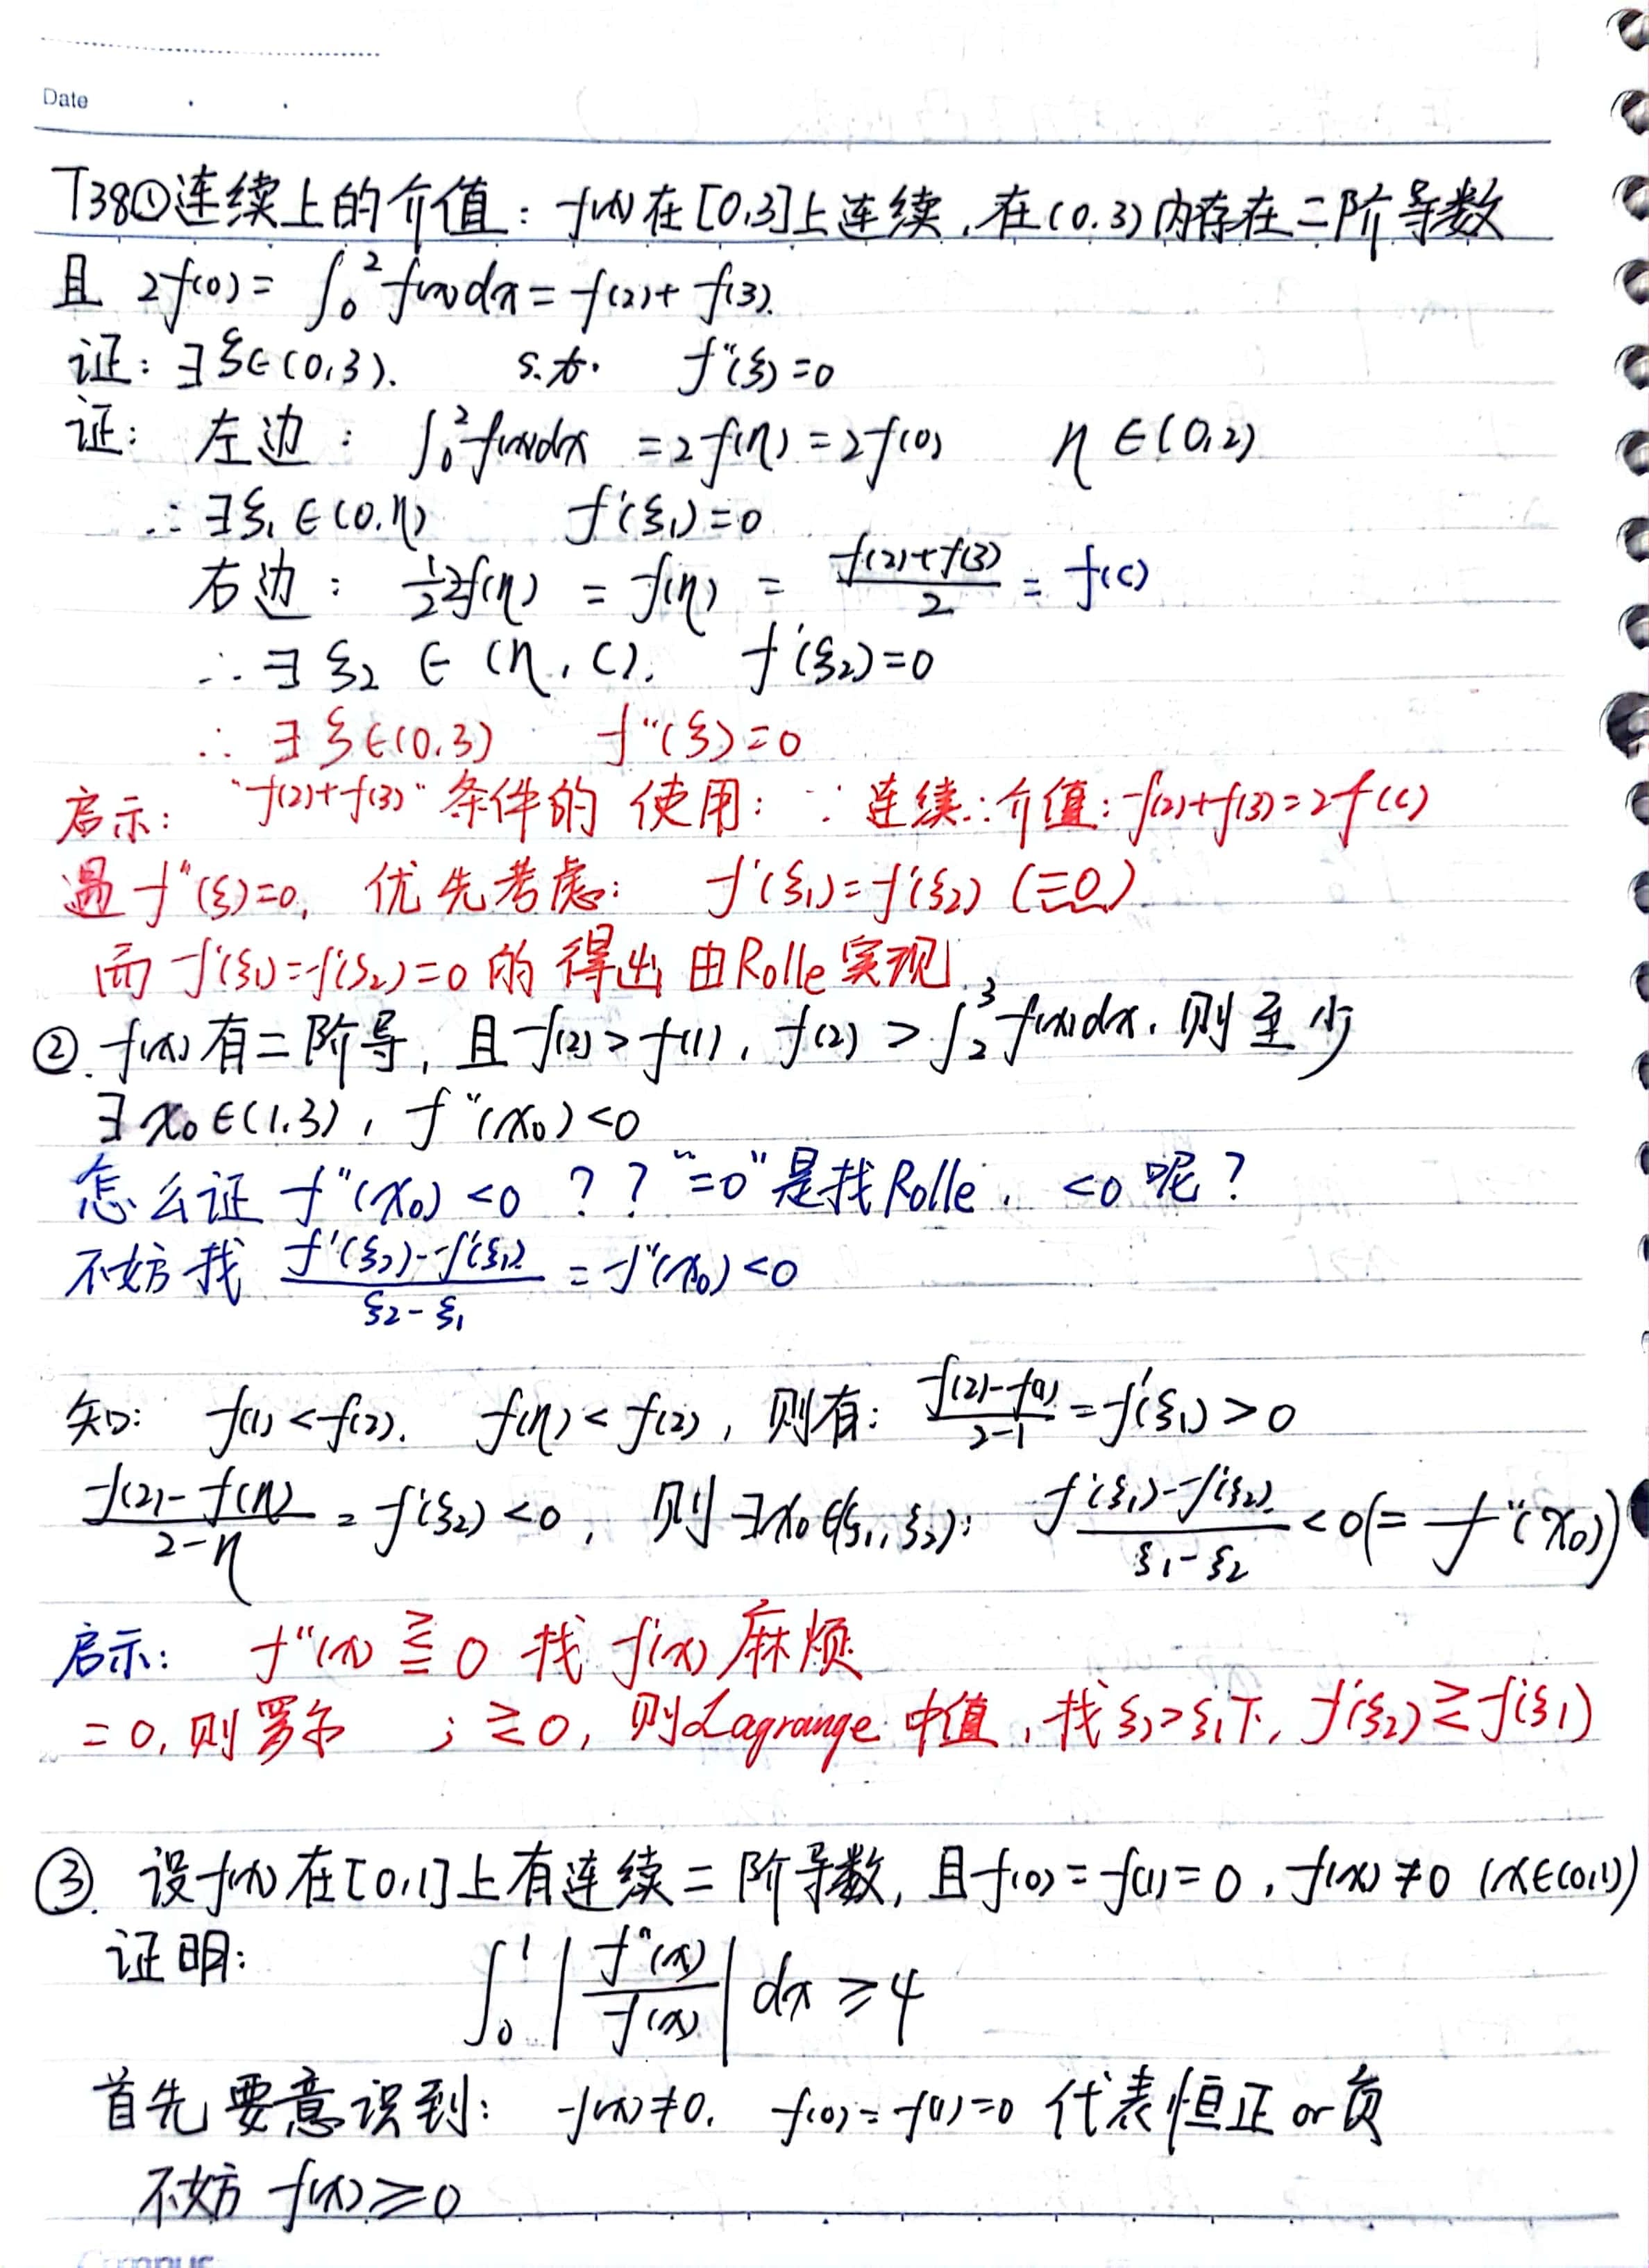 Date
T38①连续上的介值：f(x)在[0,3]上连续,在(0.3)内存在二阶导数
且 2f(0)= ∫₀² f(x)dx = f(2)+f(3).
证：∃ξ∈(0,3). s.t. f"(ξ)=0
证： 左边： ∫₀² f(x)dx =2f(η)=2f(0) η∈(0,2)
∴∃ξ₁∈(0.η) f'(ξ₁)=0
右边： ½2f(η) = f(η) = (f(2)+f(3))/2 = f(c)
∴∃ξ₂ ∈ (η,C). f'(ξ₂)=0
∴ ∃ξ∈(0.3) f"(ξ)=0
启示： "f(2)+f(3)"条件的 使用： ∵连续∴介值：f(2)+f(3)=2f(c)
遇f"(ξ)=0, 优先考虑： f'(ξ₁)=f'(ξ₂) (=0)
而 f'(ξ₁)=f'(ξ₂)=0 的 得出 由Rolle实现.
②. f(x)有二阶导，且f(2)>f(1), f(2) > ∫₂³ f(x)dx. 则至少
∃x₀∈(1.3), f"(x₀)<0
怎么证 f"(x₀)<0 ？？"=0"是找Rolle. <0呢？
不妨找 (f'(ξ₂)-f'(ξ₁))/(ξ₂-ξ₁) = f"(x₀)<0
知： f(1)<f(2). f(η)<f(2)，则有：(f(2)-f(1))/(2-1) = f'(ξ₁)>0
(f(2)-f(η))/(2-η) = f'(ξ₂)<0, 则∃x₀∈(ξ₁,ξ₂)： (f'(ξ₁)-f'(ξ₂))/(ξ₁-ξ₂) <0(= f"(x₀))
启示： f"(x)⪌0 找 f(x) 麻烦
=0,则罗尔 ；≷0，则Lagrange中值,找ξ₂>ξ₁下, f'(ξ₂)≷f'(ξ₁)
③. 设f(x)在[0,1]上有连续二阶导数，且f(0)=f(1)=0, f(x)≠0 (x∈(0,1))
证明： ∫₀¹ |f"(x)/f(x)| dx ≥4
首先要意识到： f(x)≠0. f(0)=f(1)=0 代表恒正or负
不妨 f(x)≥0
Campus